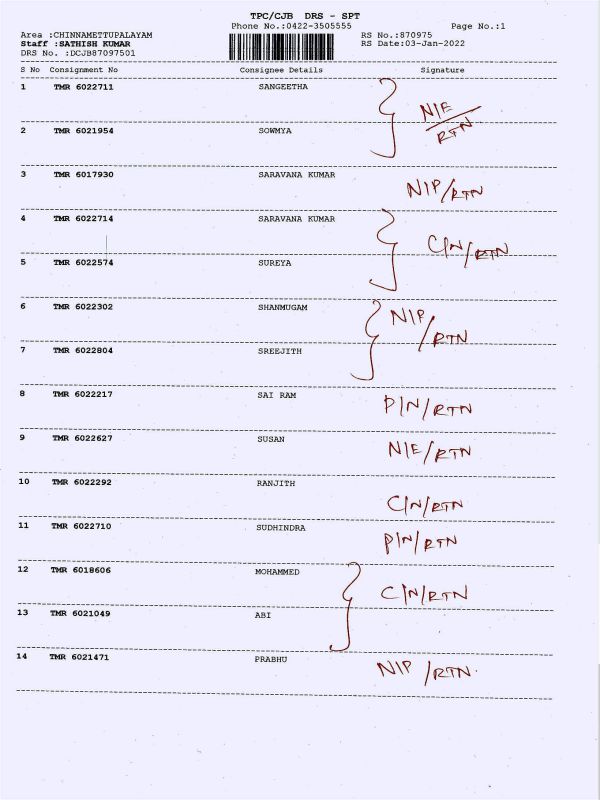 TPC/CJB DRS - SPT
Phone No.:0422-3505555 Page No.:1
Area :CHINNAMETTUPALAYAM RS No.:870975
Staff :SATHISH KUMAR RS Date:03-Jan-2022
DRS No. :DCJB87097501
S No Consignment No Consignee Details Signature
1 TMR 6022711 SANGEETHA
N/E
RTN
2 TMR 6021954 SOWMYA
3 TMR 6017930 SARAVANA KUMAR
N/P/RTN
4 TMR 6022714 SARAVANA KUMAR
C/N/RTN
5 TMR 6022574 SUREYA
6 TMR 6022302 SHANMUGAM
N/P
/RTN
7 TMR 6022804 SREEJITH
8 TMR 6022217 SAI RAM
P/N/RTN
9 TMR 6022627 SUSAN
N/E/RTN
10 TMR 6022292 RANJITH
C/N/RTN
11 TMR 6022710 SUDHINDRA
P/N/RTN
12 TMR 6018606 MOHAMMED
C/N/RTN
13 TMR 6021049 ABI
14 TMR 6021471 PRABHU
N/P/RTN.